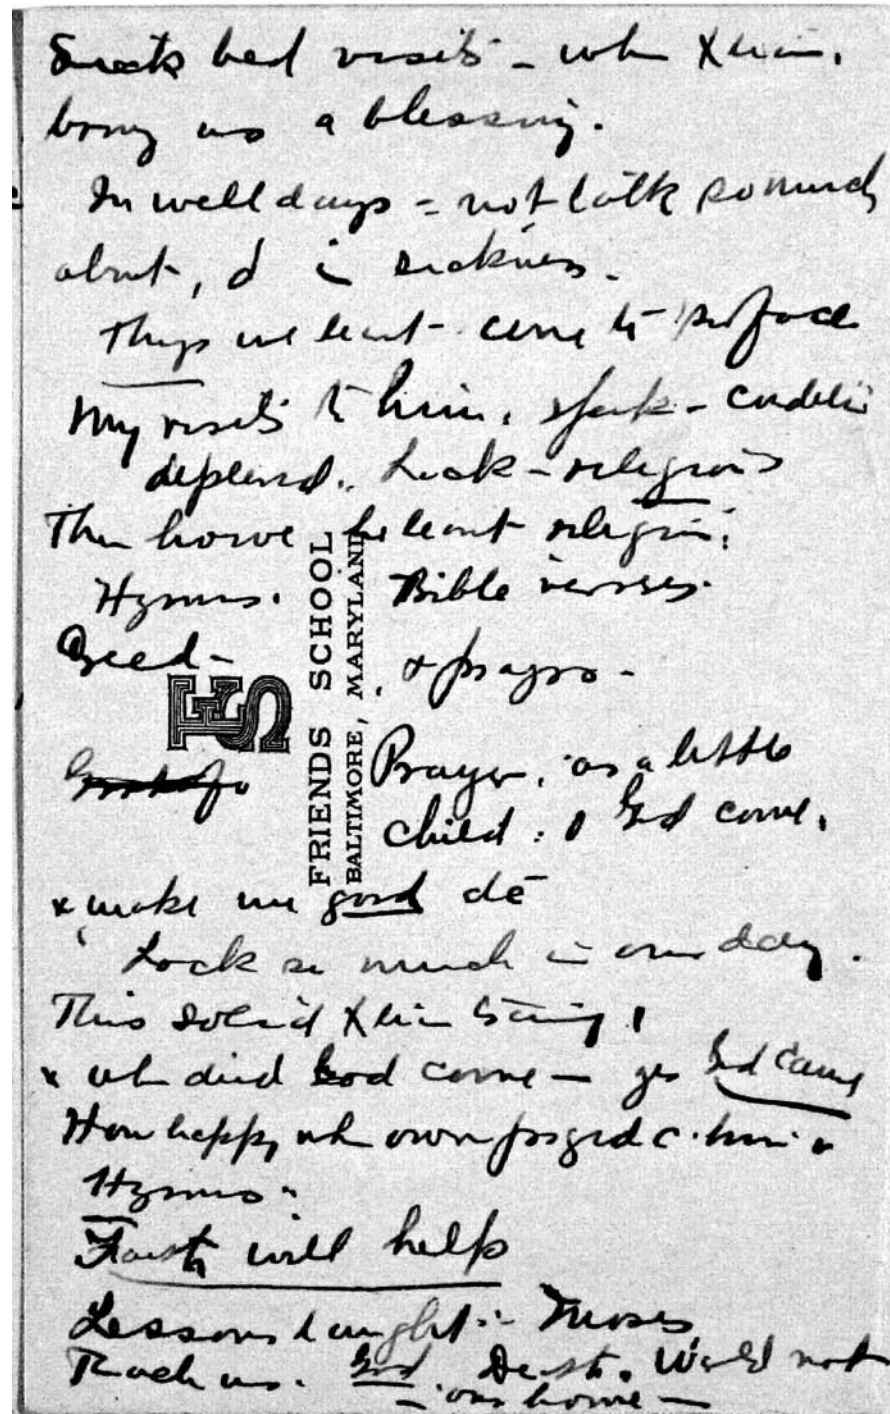 bed visits - when Xtian.
bring us a blessing.
In well days - not talk so much
about, d in sickness.
Things we learnt - come to surface
My visits to him, speak -
depend. Look - religious
The home he learnt religion.
Hymns. Bible verses.
Creed - & prayers -
FRIENDS SCHOOL
BALTIMORE, MARYLAND
FS
Prayer, as a little
child: God come,
x make me good
Lack so much in our day.
This solid Xtian training!
x wh died God come - yes God came
How happy wh own prayed c. him &
Hymns.
Faith will help
Lessons taught - Moses
Teach us. God. Death. World not
- our home -